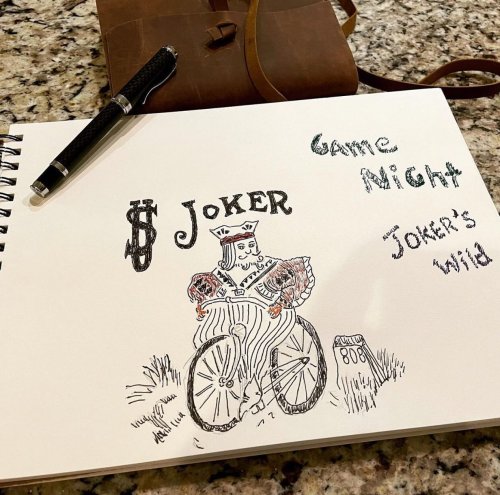 Game
Night
Joker's
Wild
US JOKER
808